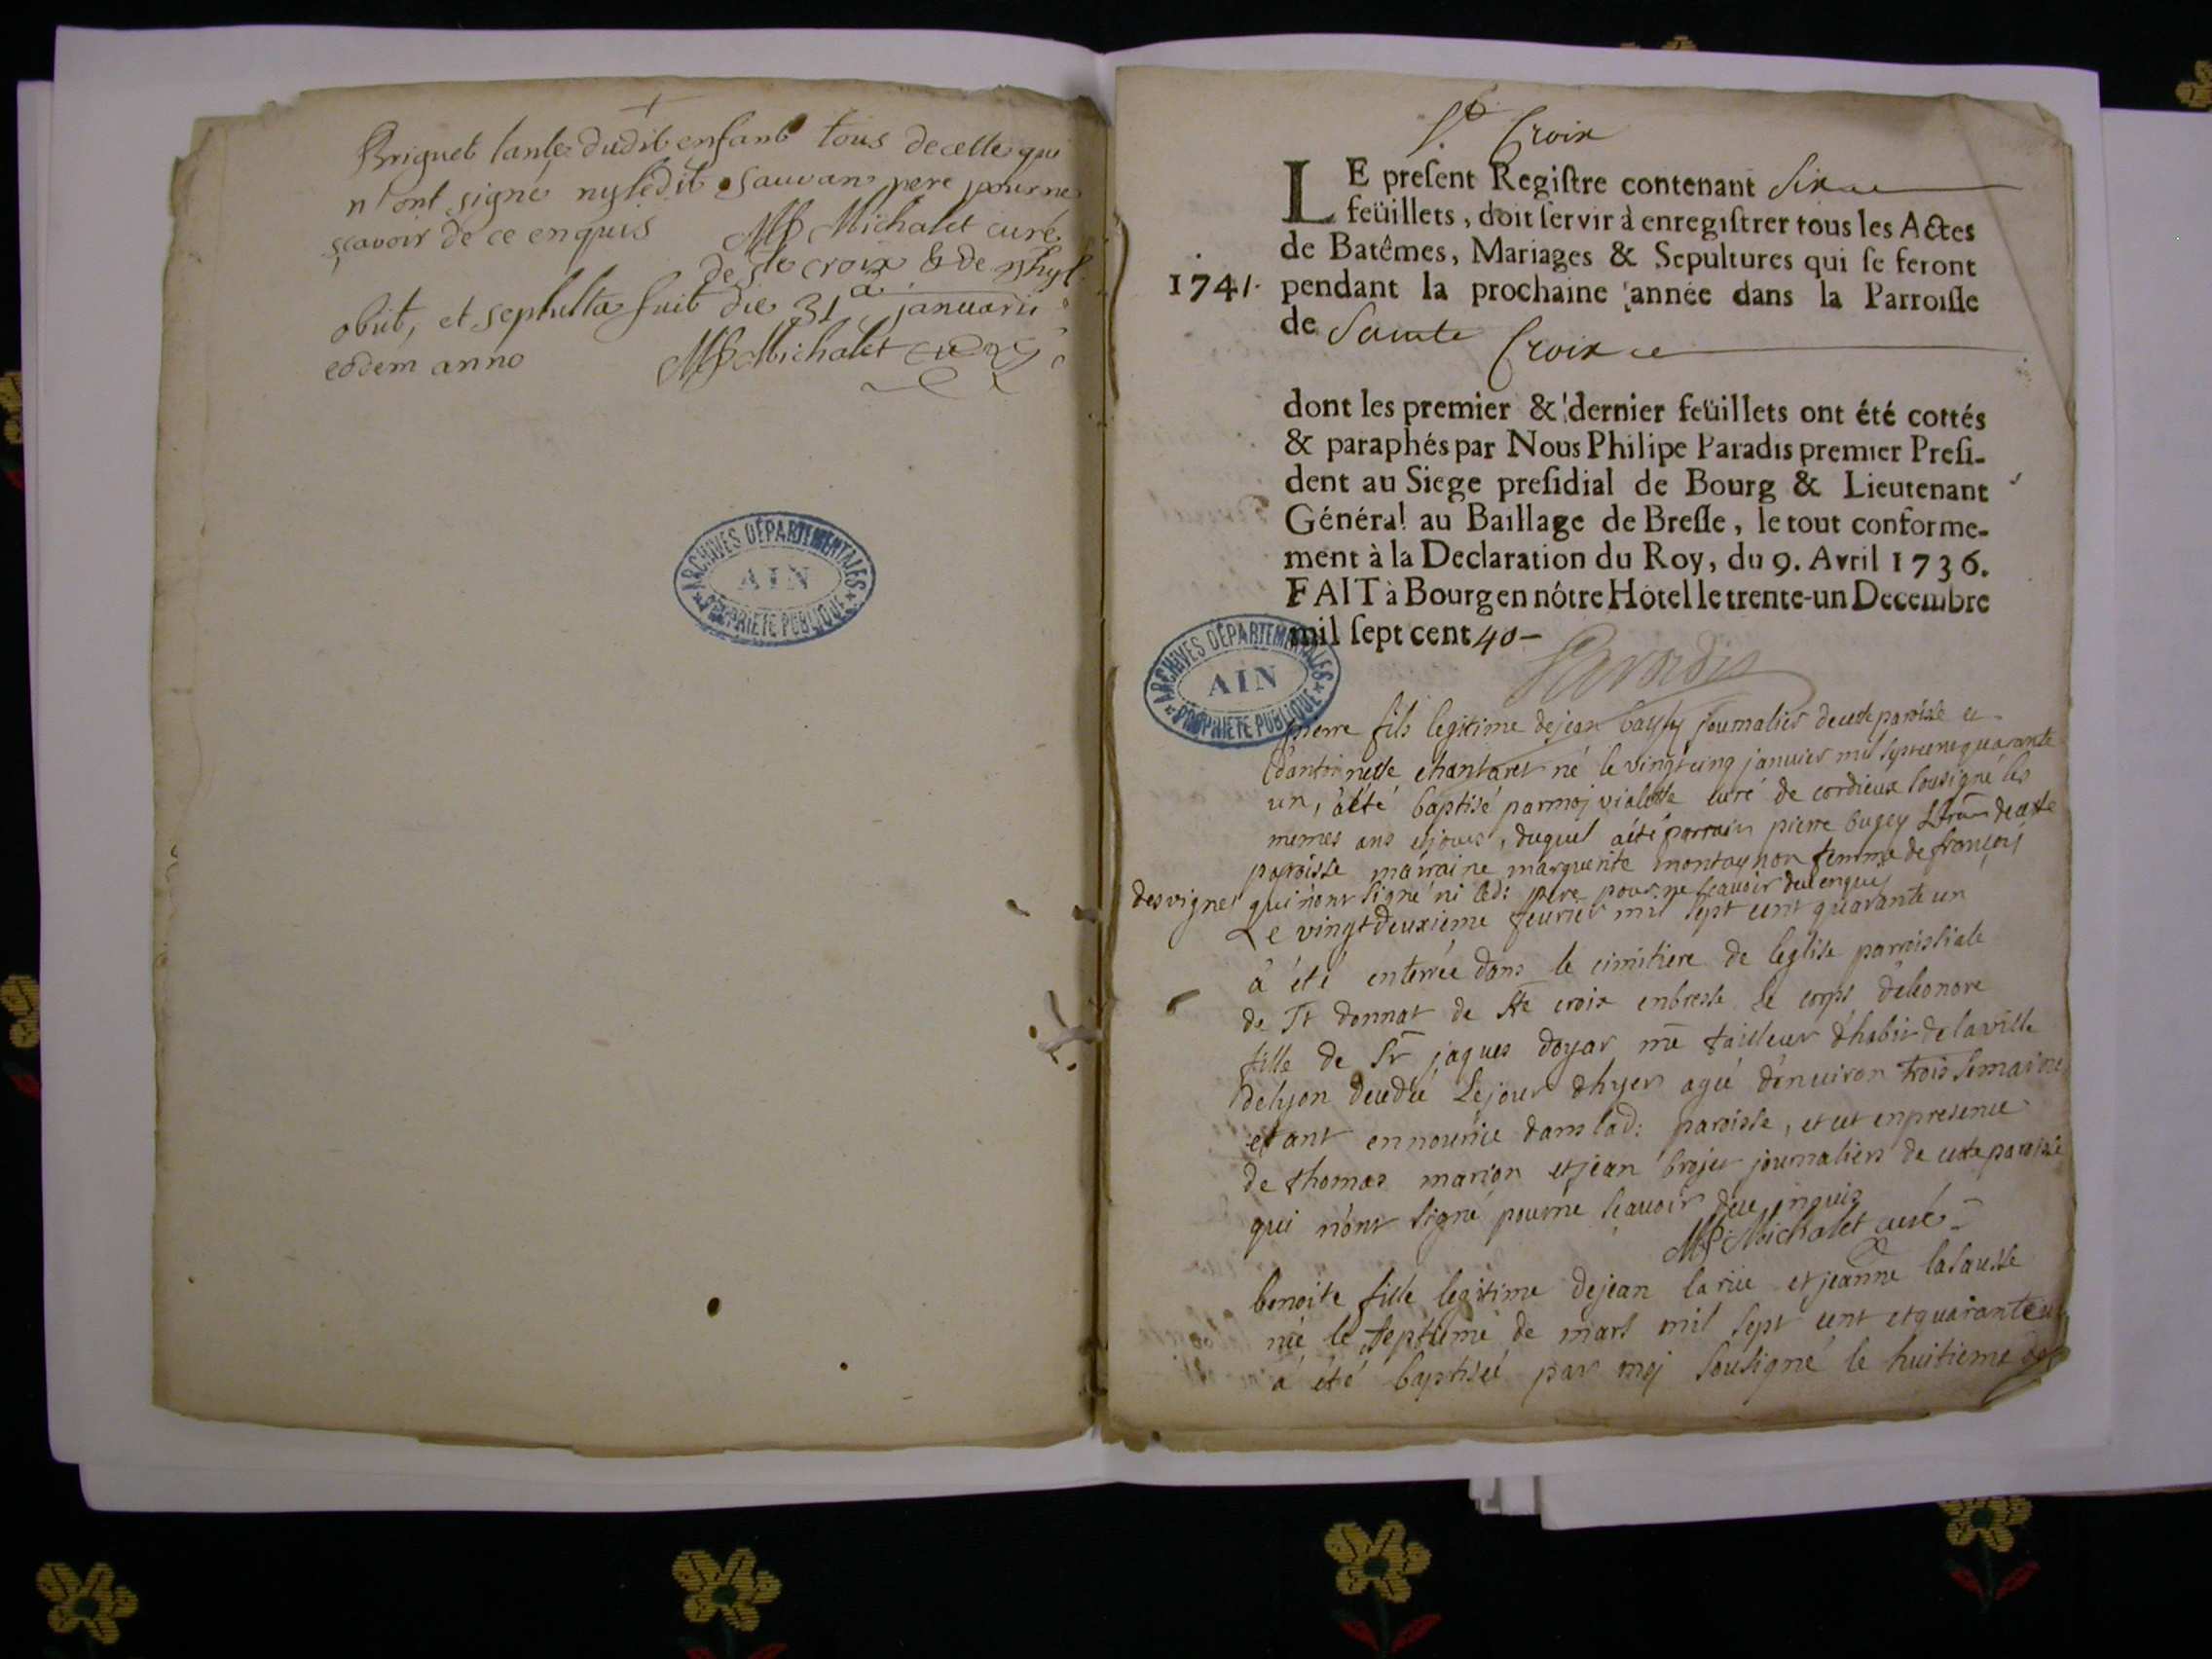 Briguet tante dudit enfant tous de cette qui
n'ont signé ny ledit Sauvan pere pour ne
sçavoir de ce enquis MP Michalet curé
de ste croix & de
obiit, et sepulta fuit die 31a januarii
eodem anno MP Michalet curé
ARCHIVES DÉPARTEMENTALES
AIN
PROPRIETE PUBLIQUE
Ste Croix
LE preſent Regiſtre contenant Six
feüillets, doit ſervir à enregiſtrer tous les Actes
de Batêmes, Mariages & Sepultures qui ſe feront
1741. pendant la prochaine année dans la Parroiſſe
de Sainte Croix
dont les premier & dernier feüillets ont été cottés
& paraphés par Nous Philipe Paradis premier Preſi-
dent au Siege preſidial de Bourg & Lieutenant
Général au Baillage de Breſſe, le tout conforme-
ment à la Declaration du Roy, du 9. Avril 1736.
FAIT à Bourg en nôtre Hôtel le trente-un Decembre
mil ſept cent 40 -
Paradis
ARCHIVES DÉPARTEMENTALES
AIN
PROPRIETE PUBLIQUE
pierre fils legitime de jean journalier de cette paroisse et
d'antoinette chantaret né le vingt cinq janvier mil sept cent quarante
un, a été baptisé par moj violette curé de cordieux sousigné les
memes ans et jour, duquel a été parrain pierre bugey de cette
paroisse marraine marguerite montagnon femme de françois
desvignes qui n'ont signé ni led: pere pour ne scavoir de ce enquis
Le vingt deuxieme feurier mil sept cent quarante un
a été enterrée dans le cimitiere de leglise paroissiale
de St donnat de ste croix en bresse le corps d'eleonore
fille de Sr jaques doyar me tailleur d'habit de la ville
de lyon decedéé Le jour d'hyer agéé d'enuiron trois semaine
etant en nourice dans lad: paroisse, et cet en presence
de thomas marion et jean brojet journaliers de cette paroisse
qui n'ont signé pour ne scavoir de ce inquis
MP Michalet curé
benoite fille legitime de jean larüe et jeanne lasausse
néé le septieme de mars mil sept cent et quarante un
a été baptiséé par moj sousigné le huitieme